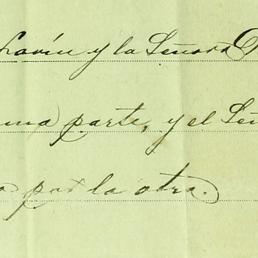 y la Señora
una parte, y el Señ
por la otra.